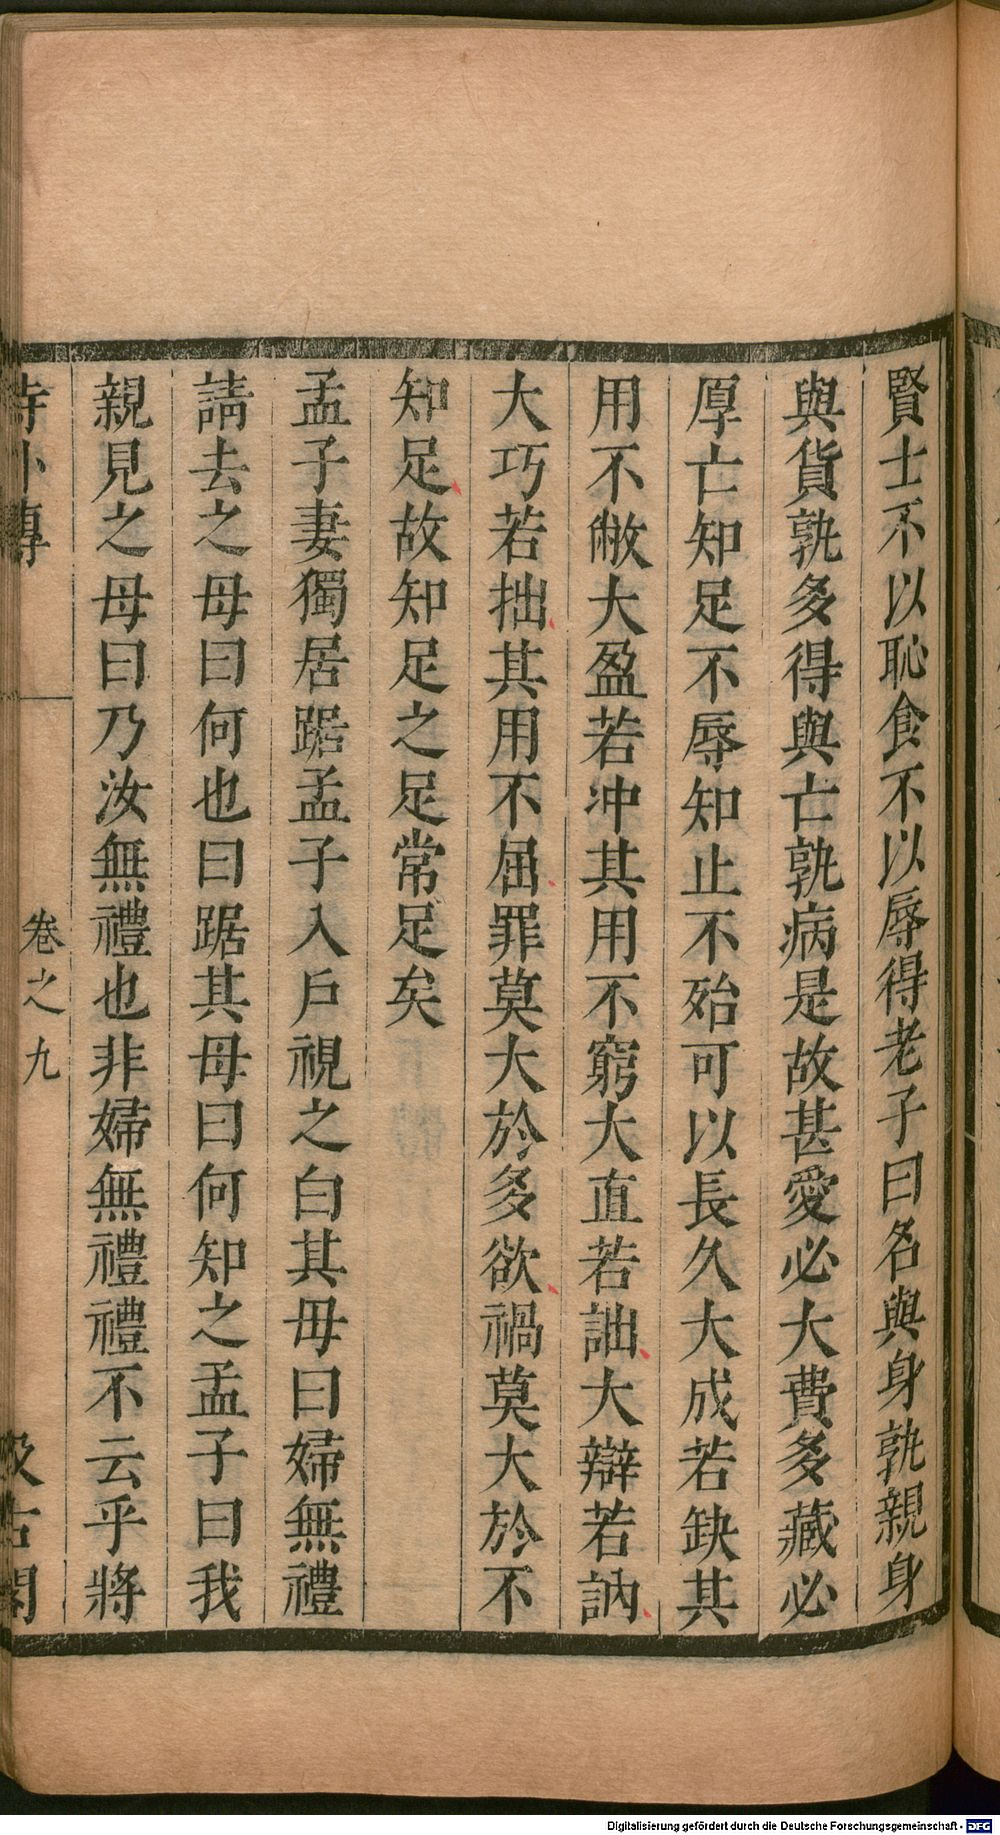 賢士不以恥食不以辱得老子曰名與身孰親身
與貨孰多得與亡孰病是故甚愛必大費多藏必
厚亡知足不辱知止不殆可以長久大成若缺其
用不敝大盈若冲其用不窮大直若詘大辯若訥
大巧若拙其用不屈罪莫大於多欲禍莫大於不
知足故知足之足常足矣
孟子妻獨居踞孟子入戶視之白其母曰婦無禮
請去之母曰何也曰踞其母曰何知之孟子曰我
親見之母曰乃汝無禮也非婦無禮禮不云乎將
詩外傳 卷之九 汲古閣
Digitalisierung gefördert durch die Deutsche Forschungsgemeinschaft - DFG